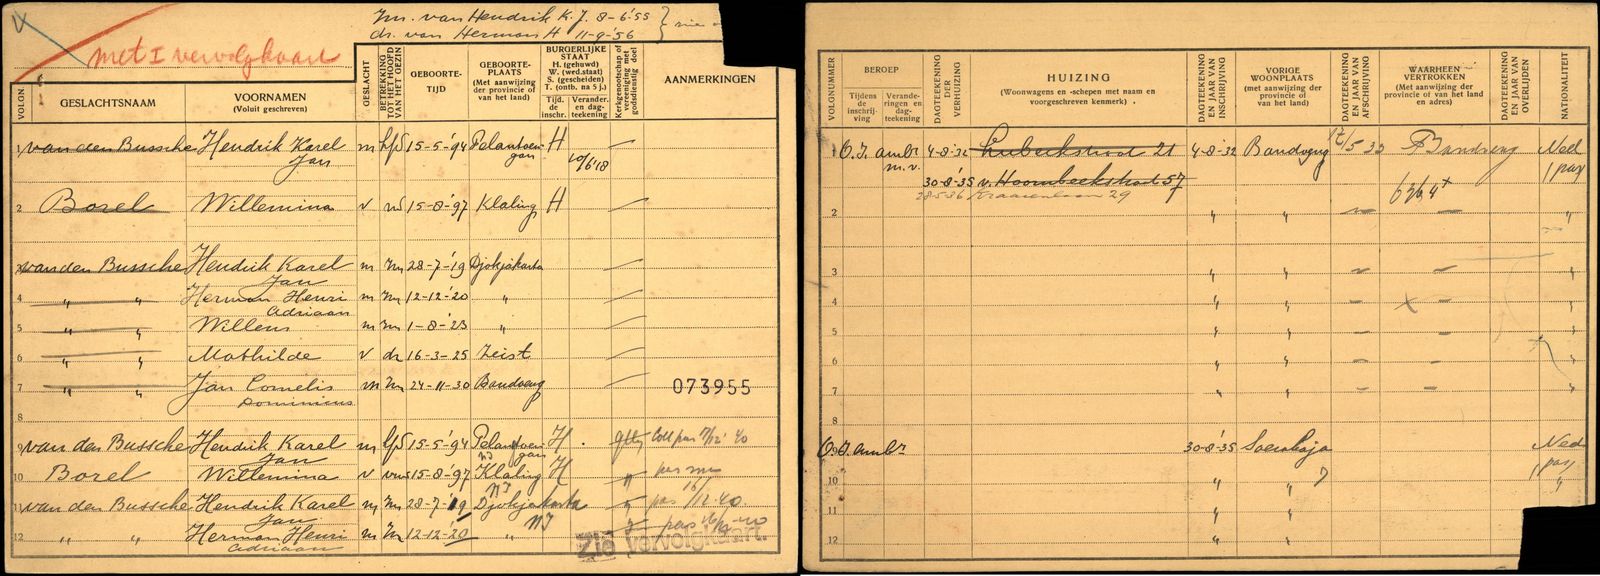 Zn. van Hendrik K. J. 8-6-'55
dr. van Herman H 11-9-'56
met I vervolgkaart
VOLGN.
GESLACHTSNAAM
VOORNAMEN
(Voluit geschreven)
GESLACHT
BETREKKING TOT HET HOOFD VAN HET GEZIN
GEBOORTE-
TIJD
GEBOORTE-
PLAATS
(Met aanwijzing der provincie of van het land)
BURGERLIJKE STAAT
H. (gehuwd)
W. (wed.staat)
S. (gescheiden)
T. (ontb. na 5 j.)
Tijd. in inschr.
Verander. en dag-teekening
Kerkgenootschap of vereeniging met godsdienstig doel
AANMERKINGEN
1 van den Bussche Hendrik Karel Jan m hfd 15-5-'94 Pelantoengan H 10/6'18
2 Borel Willemina v 15-8-'97 Klaling H
3 van den Bussche Hendrik Karel Jan m Zn 28-7-'19 Djokjakarta
4 " " Herman Henri Adriaan m Zn 12-12-'20 "
5 " " Willem m Zn 1-8-'23 "
6 " " Mathilde v dr 16-3-25 Zeist
7 " " Jan Cornelis Dominicus m Zn 24-11-30 Bandoeng
073955
8
9 van den Bussche Hendrik Karel Jan m hfd 15-5-'94 Pelantoengan NI H.
10 Borel Willemina v 15-8-'97 Klaling NI H "
11 van den Bussche Hendrik Karel Jan m Zn 28-7-'19 Djokjakarta NI " pas 16/12.40
12 " " Herman Henri Adriaan m Zn 12-12-20 "
Zie vervolgkaart.
VOLGNUMMER
BEROEP
Tijdens de inschrijving
Veranderingen en dagteekening
DAGTEEKENING DER VERHUIZING
HUIZING
(Woonwagens en -schepen met naam en voorgeschreven kenmerk)
DAGTEEKENING EN JAAR VAN INSCHRIJVING
VORIGE WOONPLAATS
(met aanwijzing der provincie of van het land)
DAGTEEKENING EN JAAR VAN AFSCHRIJVING
WAARHEEN VERTROKKEN
(Met aanwijzing der provincie of van het land en adres)
DAGTEEKENING EN JAAR VAN OVERLIJDEN
NATIONALITEIT
1 O.I. ambt m.v. 4-8-'32 Lubeckstraat 21 4-8-'32 Bandoeng Bandoeng Ned
30-8-'35 v. Hoornbeekstraat 57 pas
28-5-36 Kraaienlaan 29
2 " " "
3 " " "
4 " " "
5 " " "
6 " " "
7 " " "
8
9 O.I. ambt 30-8-'35 Soerabaja Ned pas
10 " " "
11 " "
12 " "